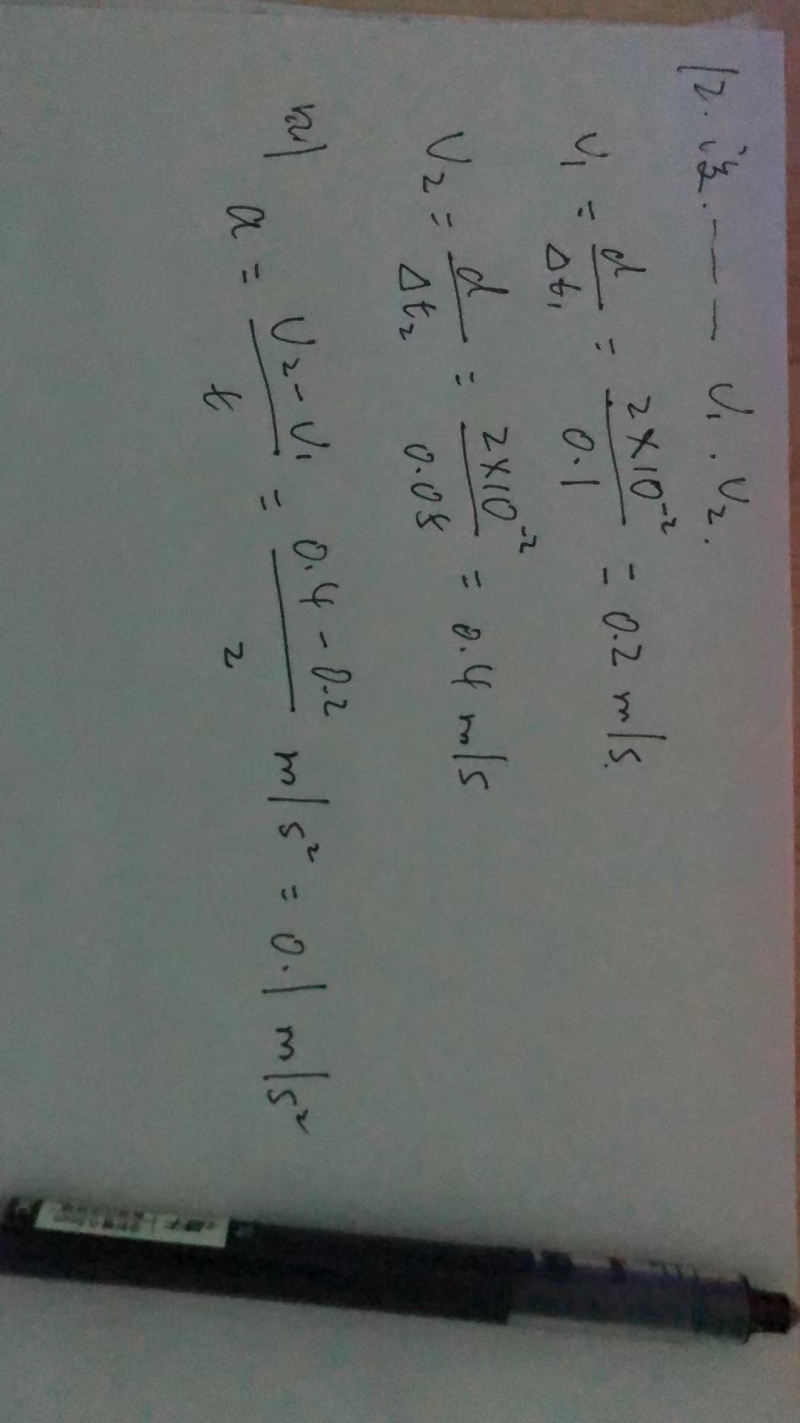 12. 设. — — V₁. V₂.
V₁ = d/Δt₁ = 2×10⁻²/0.1 = 0.2 m/s.
V₂ = d/Δt₂ = 2×10⁻²/0.05 = 0.4 m/s
则 a = V₂-V₁/t = 0.4-0.2/2 m/s² = 0.1 m/s²